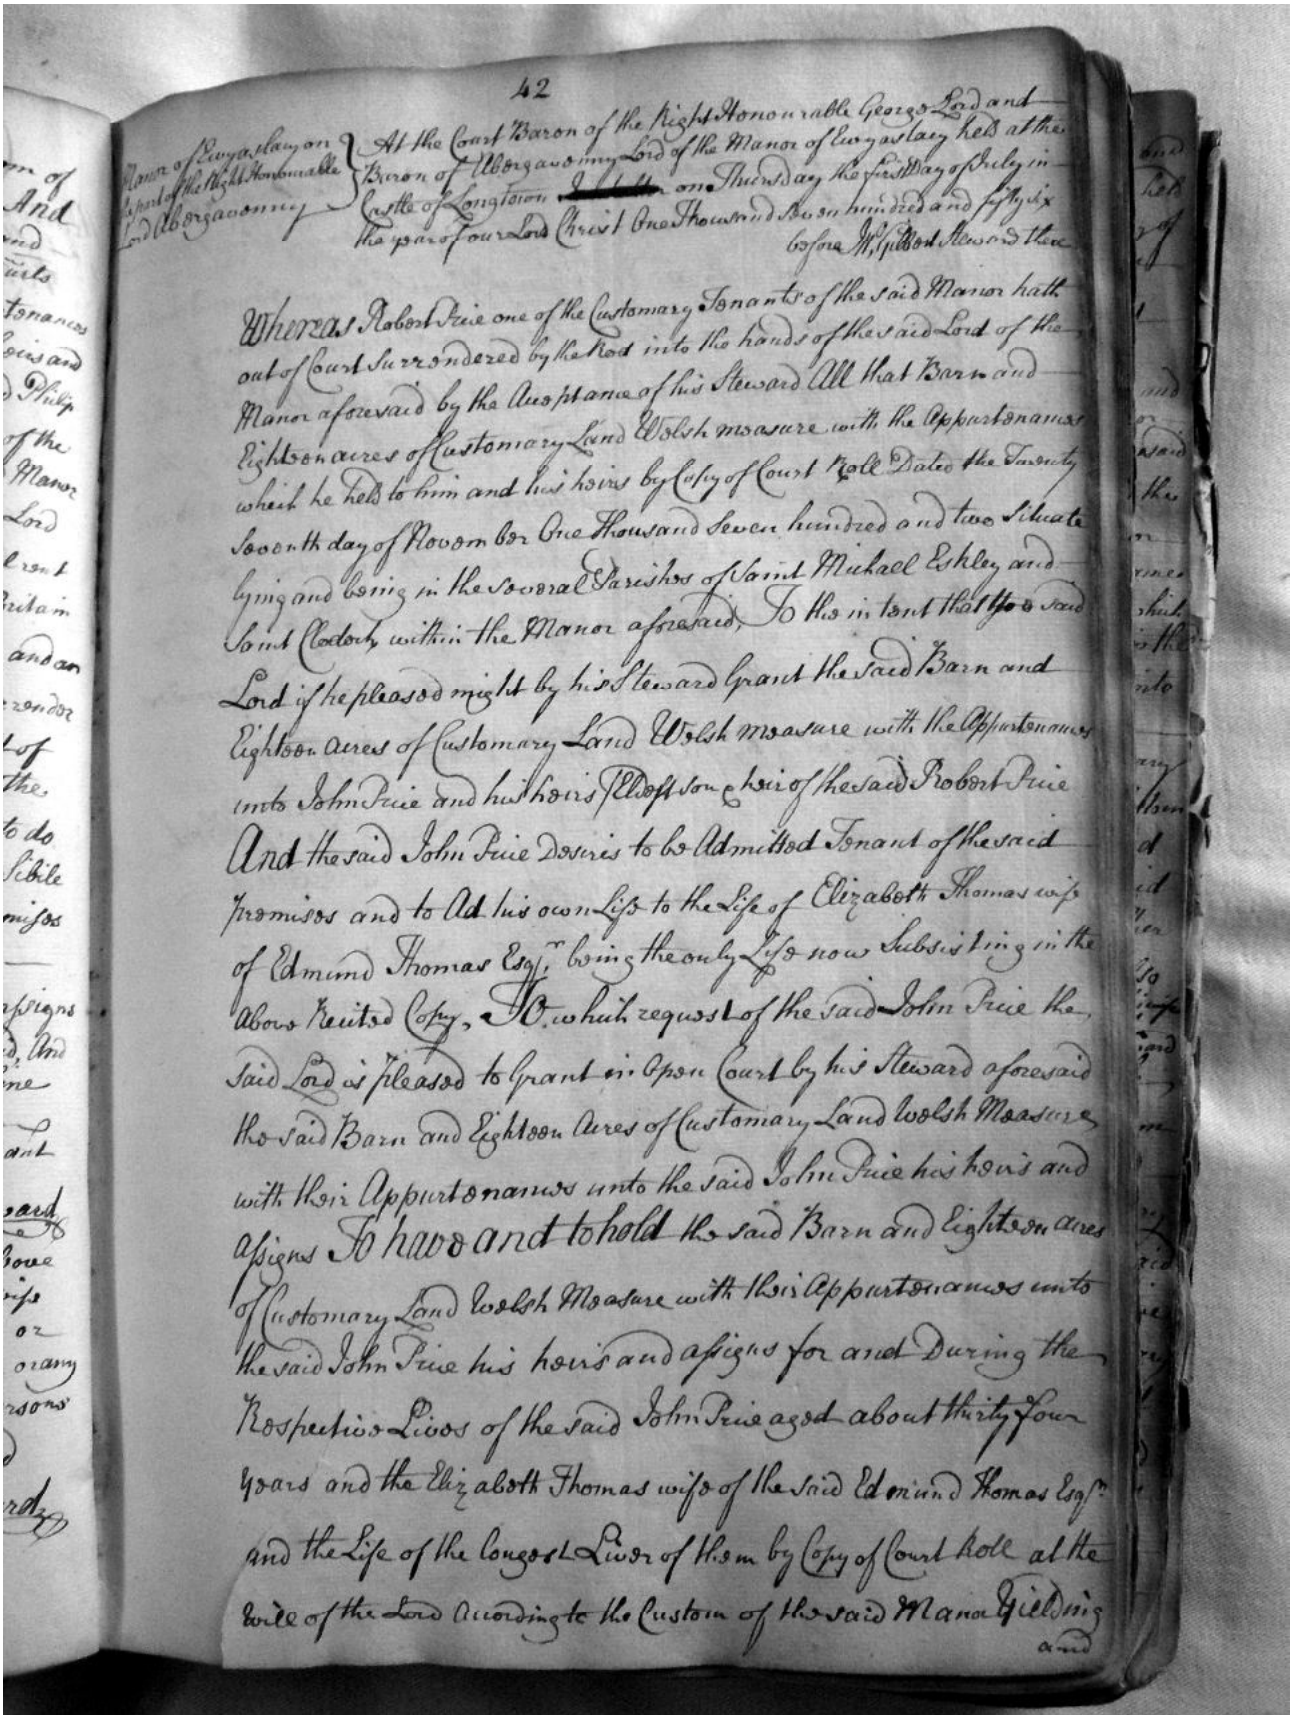 42
Manor of Ewyaslacy on
the part of the Right Honourable
Lord Abergavenny
At the Court Baron of the Right Honourable George Lord and
Baron of Abergavenny Lord of the Manor of Ewyaslacy held at the
Castle of Longtown on Thursday the first Day of July in
the year of our Lord Christ One Thousand Seven hundred and fifty six
before Wm Gilbert Steward there
Whereas Robert Price one of the Customary Tenants of the said Manor hath
out of Court Surrendered by the Rod into the hands of the said Lord of the
Manor aforesaid by the Acceptance of his Steward All that Barn and
Eighteen acres of Customary Land Welsh measure with the Appurtenances
which he held to him and his heirs by Copy of Court Roll Dated the Twenty
Seventh day of November One Thousand Seven hundred and two Situate
lying and being in the several Parishes of Saint Michael Eskley and
Saint Clodock within the Manor aforesaid, To the intent that the said
Lord if he pleased might by his Steward Grant the said Barn and
Eighteen Acres of Customary Land Welsh measure with the Appurtenances
unto John Price and his heirs Eldest son & heir of the said Robert Price
And the said John Price Desires to be Admitted Tenant of the said
premises and to Ad his own Life to the Life of Elizabeth Thomas wife
of Edmund Thomas Esqr. being the only Life now Subsisting in the
above Recited Copy, To which request of the said John Price the
said Lord is pleased to Grant in Open Court by his Steward aforesaid
the said Barn and Eighteen Acres of Customary Land Welsh Measure
with their Appurtenances unto the said John Price his heirs and
assigns To have and to hold the said Barn and Eighteen acres
of Customary Land Welsh Measure with their Appurtenances unto
the said John Price his heirs and assigns for and During the
Respective Lives of the said John Price aged about thirty four
years and the Elizabeth Thomas wife of the said Edmund Thomas Esqr.
and the Life of the longest Liver of them by Copy of Court Roll at the
Will of the Lord according to the Custom of the said Manor Yielding
and